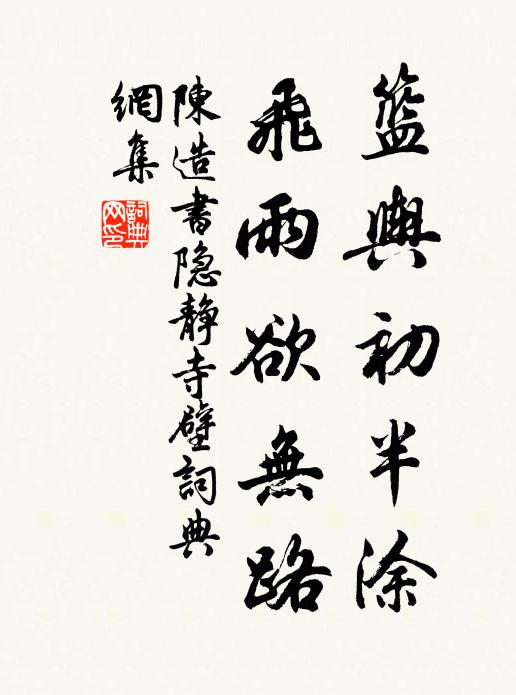 籃輿初半涂
飛雨欲無路
陳造書隐靜寺壁詞典
網集
詞典網印